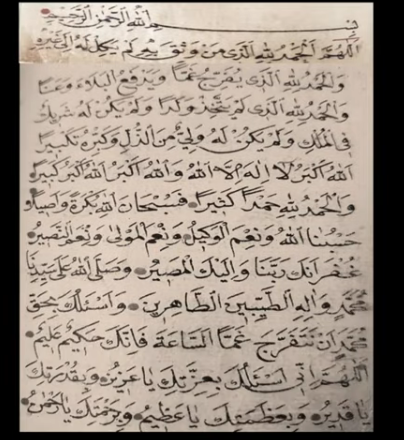 بسم الله الرحمن الرحيم
اللهم الحمد لله الذي من وثق به لم يكله الى غيره
والحمد لله الذي يفرج غمنا ويدفع البلاء وعنا
والحمد لله الذي لم يتخذ ولدا ولم يكن له شريك
في الملك ولم يكن له ولي من الذل وكبره تكبيرا
الله اكبر لا اله الا الله والله اكبر الله اكبر كبيرا
والحمد لله حمدا كثيرا فسبحان الله بكرة واصيلا
حسبنا الله ونعم الوكيل ونعم المولى ونعم النصير
غفرانك ربنا واليك المصير وصلى الله على سيدنا
محمد واله الطيبين الطاهرين واسئلك بحق
محمد ان تفرج غمنا الساعة فانك حكيم عليم
اللهم اني اسئلك بعزتك يا عزيز وبقدرتك
يا قدير وبعظمتك يا عظيم وبرحمتك يا رحمن